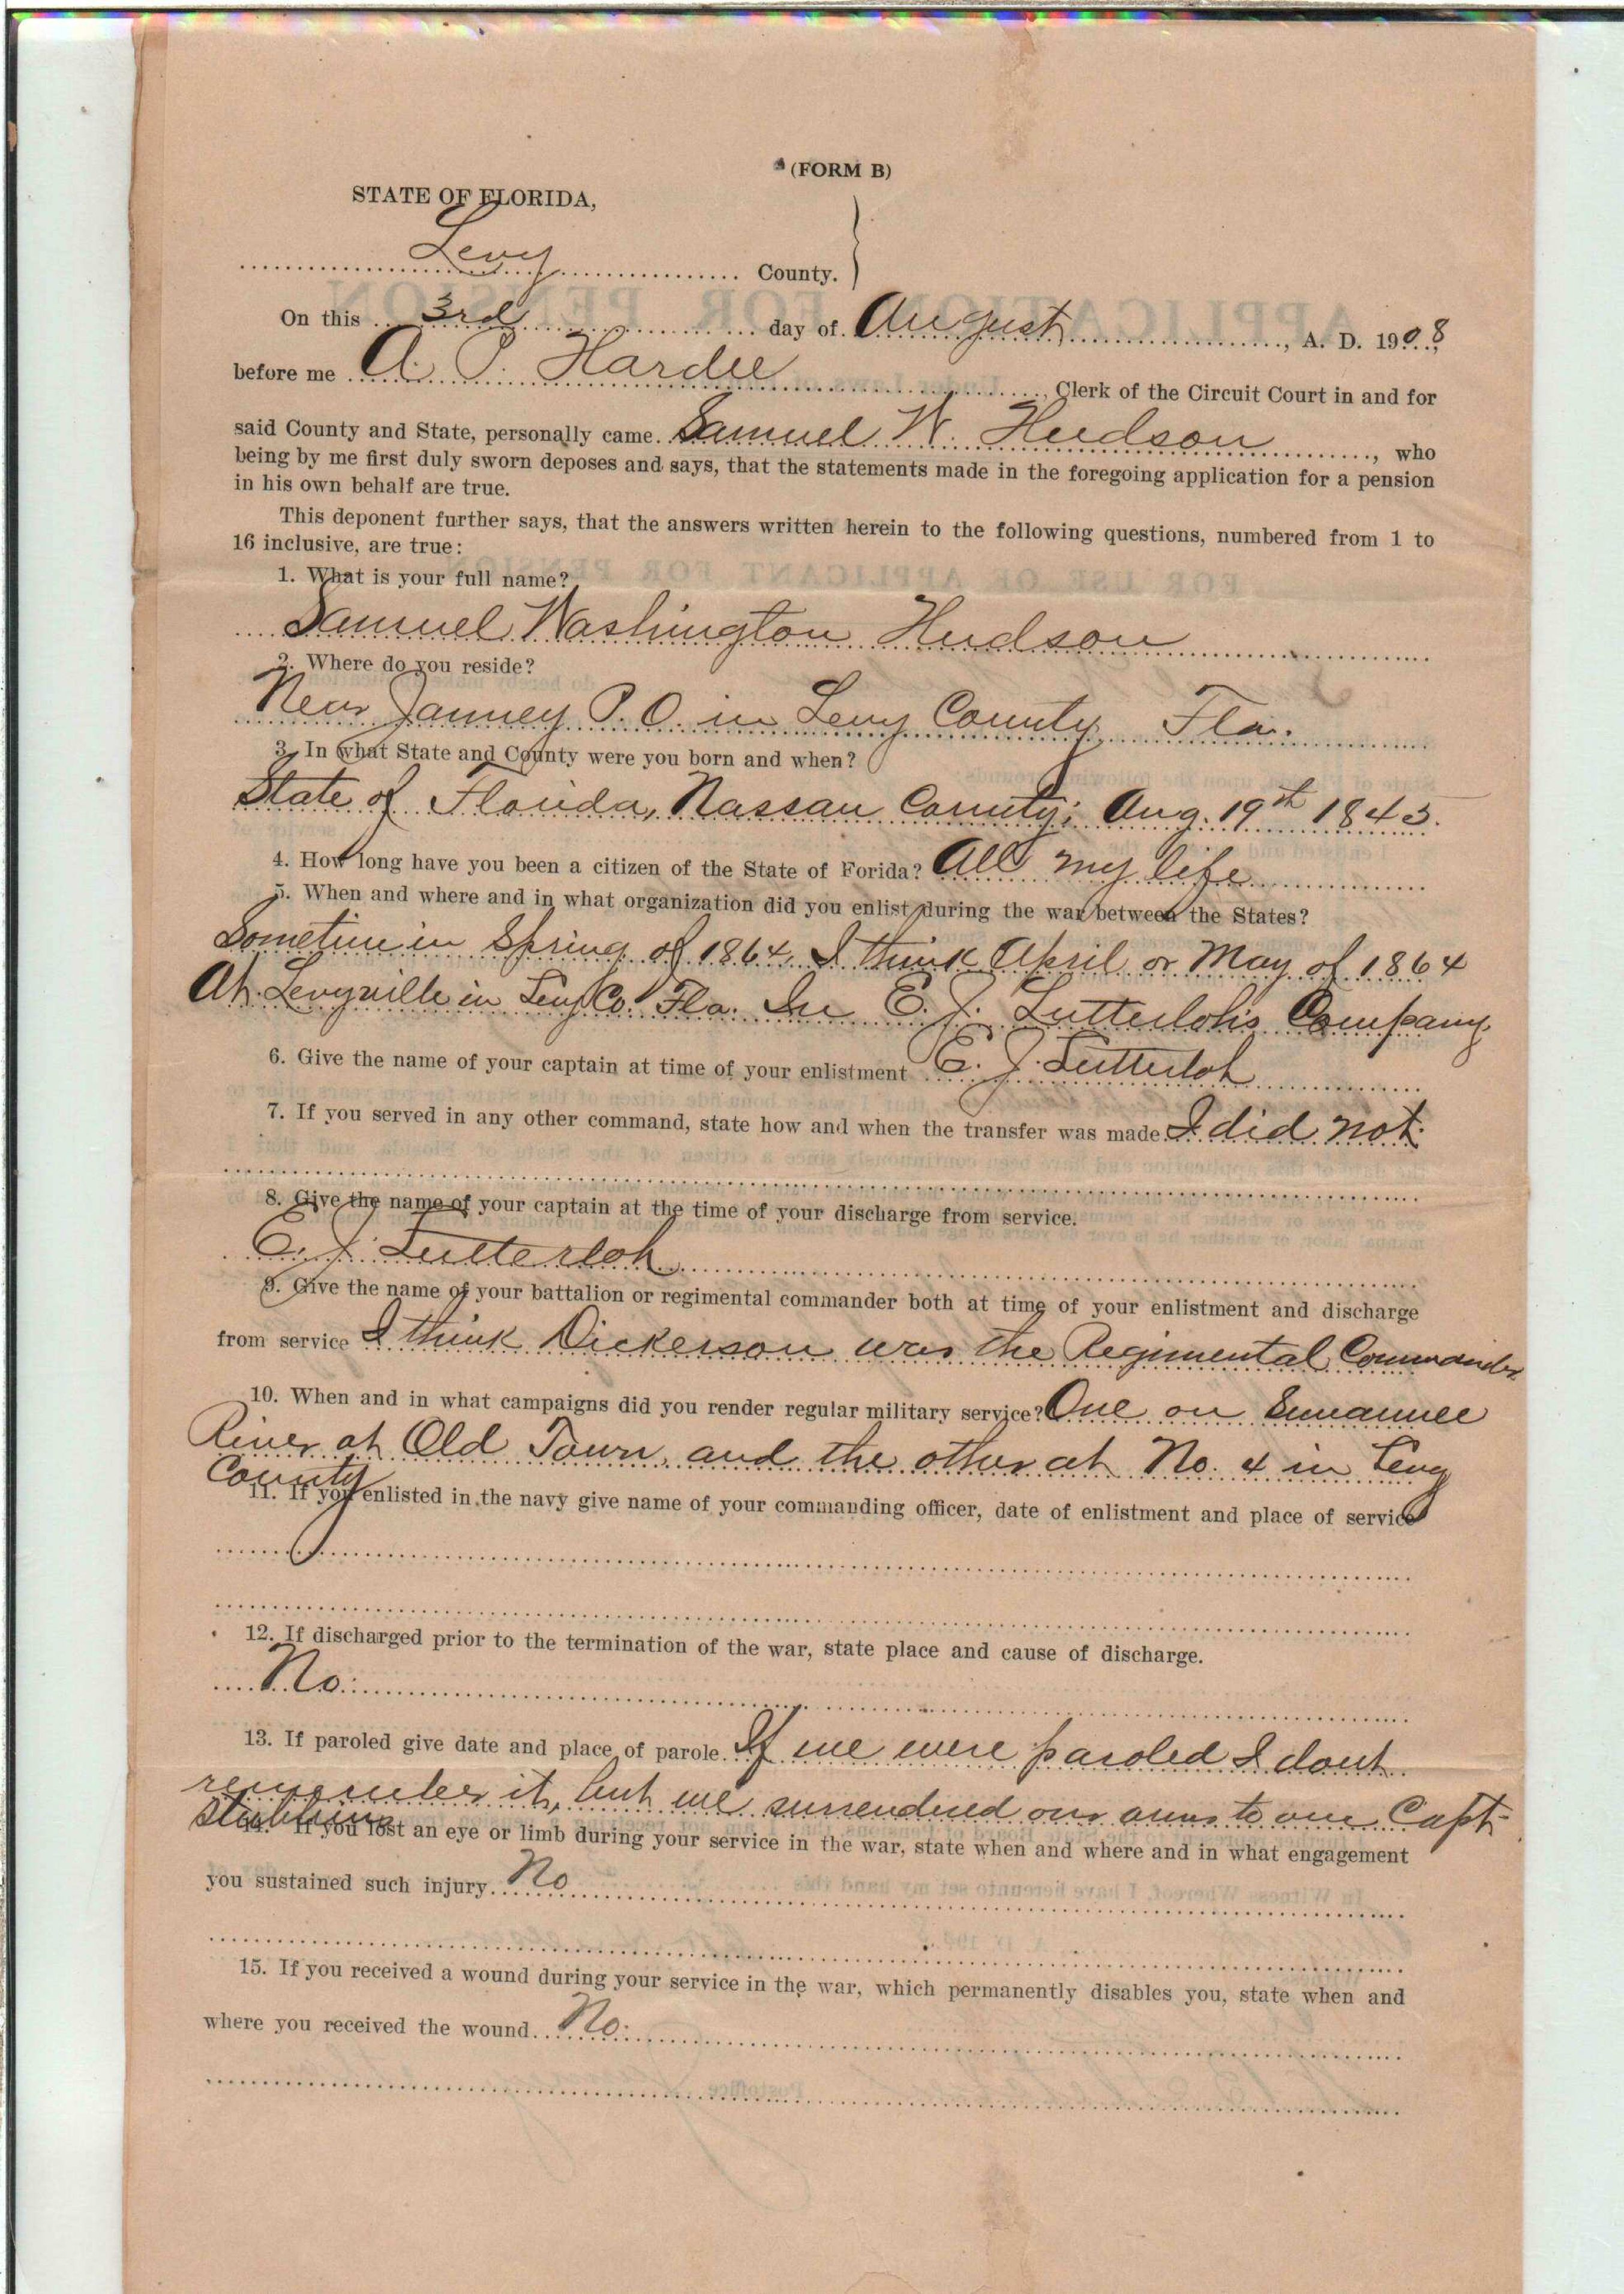 (FORM B)
STATE OF FLORIDA,
Levy County.
On this 3rd day of August, A. D. 1908,
before me A. P. Hardee, Clerk of the Circuit Court in and for
said County and State, personally came Samuel W. Hudson, who
being by me first duly sworn deposes and says, that the statements made in the foregoing application for a pension
in his own behalf are true.
This deponent further says, that the answers written herein to the following questions, numbered from 1 to
16 inclusive, are true:
1. What is your full name?
Samuel Washington Hudson
2. Where do you reside?
Near Janney P. O. in Levy County, Fla.
3. In what State and County were you born and when?
State of Florida, Nassau County; Aug. 19th 1845.
4. How long have you been a citizen of the State of Forida? All my life
5. When and where and in what organization did you enlist during the war between the States?
Sometime in Spring of 1864, I think April or May of 1864
At Levyville in Levy Co. Fla. In E. J. Lutterloh's Company.
6. Give the name of your captain at time of your enlistment E. J. Lutterloh
7. If you served in any other command, state how and when the transfer was made I did not.
8. Give the name of your captain at the time of your discharge from service.
E. J. Lutterloh
9. Give the name of your battalion or regimental commander both at time of your enlistment and discharge
from service I think Dickerson was the Regimental Commander
10. When and in what campaigns did you render regular military service? One on Suwannee
River at Old Town, and the other at No. 4 in Levy
County
11. If you enlisted in the navy give name of your commanding officer, date of enlistment and place of service
12. If discharged prior to the termination of the war, state place and cause of discharge.
No.
13. If paroled give date and place of parole. If we were paroled I dont
remember it, but we surrendered our arms to one Capt.
14. If you lost an eye or limb during your service in the war, state when and where and in what engagement
you sustained such injury. No
15. If you received a wound during your service in the war, which permanently disables you, state when and
where you received the wound. No.